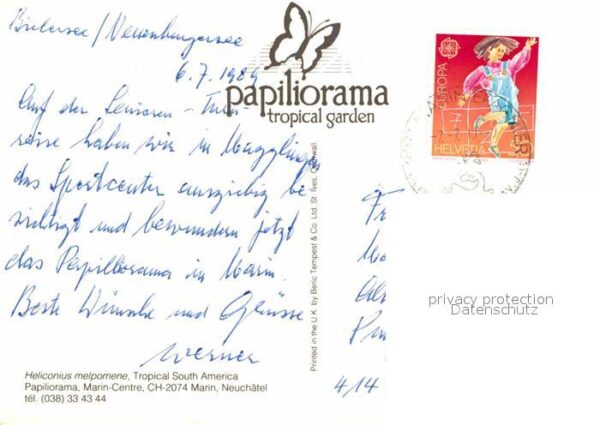 Bielersee / Neuenburgersee
6.7.1989
Auf der Senioren-Turn
reise haben wir in Magglingen
das Sportcenter ausgiebig be
sichtigt und bewundern jetzt
das Papiliorama in Marin.
Beste Wünsche und Grüsse
Werner
papiliorama
tropical garden
Heliconius melpomene, Tropical South America
Papiliorama, Marin-Centre, CH-2074 Marin, Neuchâtel
tél. (038) 33 43 44
Printed in the U.K. by Beric Tempest & Co. Ltd. St. Ives, Cornwall
EUROPA
HELVETIA
Fr
4/14
privacy protection
Datenschutz